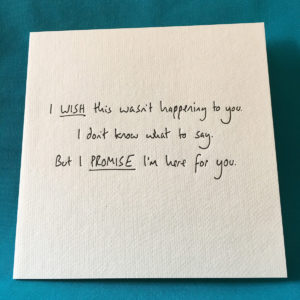 I WISH this wasn't happening to you.
I don't know what to say.
But I PROMISE I'm here for you.